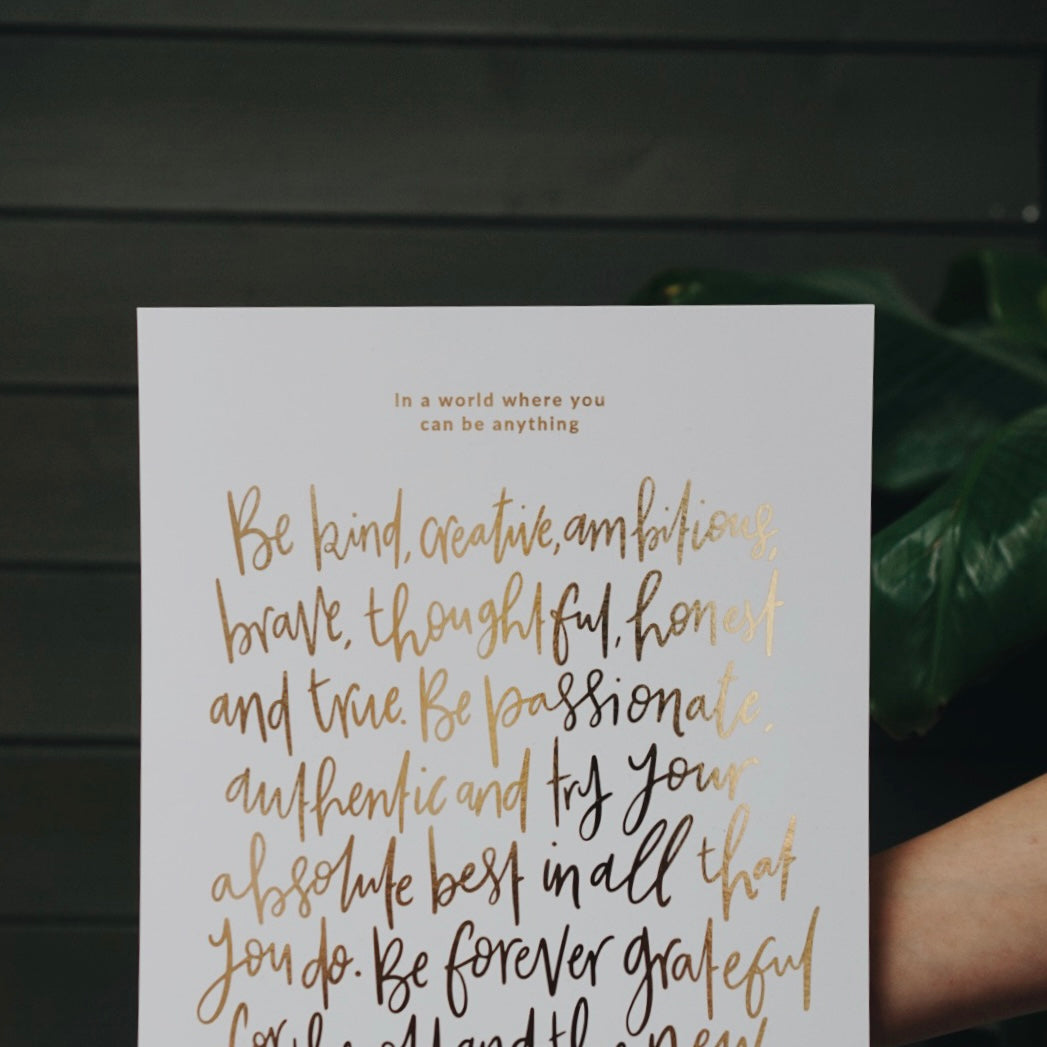 In a world where you
can be anything
Be kind, creative, ambitious,
brave, thoughtful, honest
and true. Be passionate,
authentic and try your
absolute best in all that
you do. Be forever grateful
for the old and the new